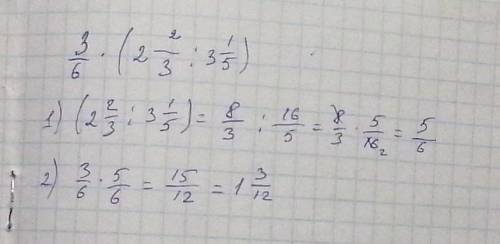 3/6 · (2 2/3 : 3 1/5)
1) (2 2/3 : 3 1/5) = 8/3 : 16/5 = 8/3 · 5/16 2 = 5/6
2) 3/6 · 5/6 = 15/12 = 1 3/12